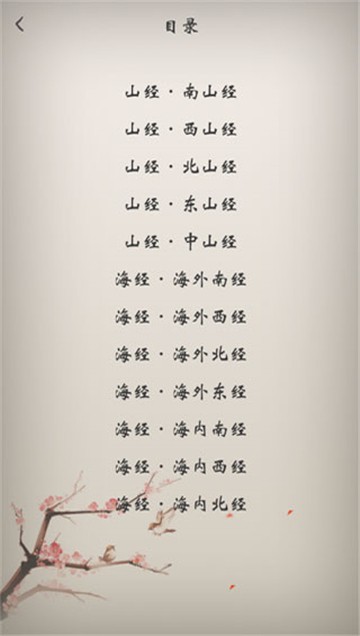 目录
山经·南山经
山经·西山经
山经·北山经
山经·东山经
山经·中山经
海经·海外南经
海经·海外西经
海经·海外北经
海经·海外东经
海经·海内南经
海经·海内西经
海经·海内北经